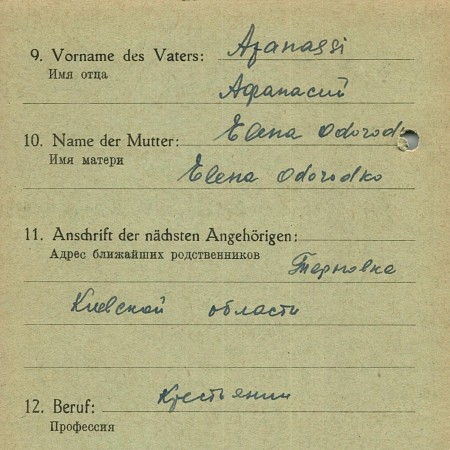 9. Vorname des Vaters: Afanassi
Имя отца
Афанасий
10. Name der Mutter: Elena Odorodk
Имя матери
Elena Odorodko
11. Anschrift der nächsten Angehörigen:
Адрес ближайших родственников Терновка
Киевской области
12. Beruf: Крестьянин
Профессия